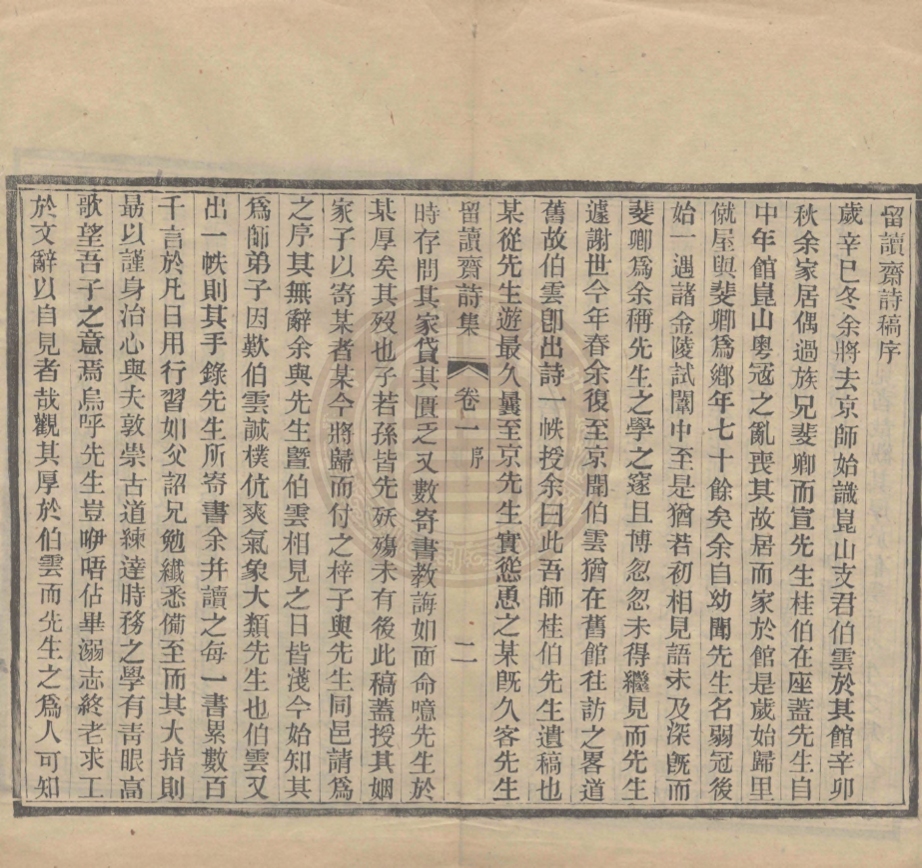 留讀齋詩稿序
歲辛巳冬余將去京師始識崑山支君伯雲於其館辛卯
秋余家居偶過族兄斐卿而宣先生桂伯在座蓋先生自
中年館崑山粵寇之亂喪其故居而家於館是歲始歸里
僦屋與斐卿爲鄉年七十餘矣余自幼聞先生名弱冠後
始一遇諸金陵試闈中至是猶若初相見語未及深旣而
斐卿爲余稱先生之學之邃且博忽忽未得繼見而先生
遽謝世今年春余復至京聞伯雲猶在舊館往訪之畧道
舊故伯雲卽出詩一帙授余曰此吾師桂伯先生遺稿也
某從先生遊最久曩至京先生實慫恿之某旣久客先生
留讀齋詩集
卷一
序
二
時存問其家貸其匱乏又數寄書敎誨如面命噫先生於
某厚矣其歿也子若孫皆先殀殤未有後此稿蓋授其姻
家子以寄某者某今將歸而付之梓子與先生同邑請爲
之序其無辭余與先生曁伯雲相見之日皆淺今始知其
爲師弟子因歎伯雲誠樸伉爽氣象大類先生也伯雲又
出一帙則其手錄先生所寄書余幷讀之每一書累數百
千言於凡日用行習如父詔兄勉纖悉備至而其大指則
勗以謹身治心與夫敦崇古道練達時務之學有靑眼高
歌望吾子之意焉烏呼先生豈咿唔佔畢溺志終老求工
於文辭以自見者哉觀其厚於伯雲而先生之爲人可知